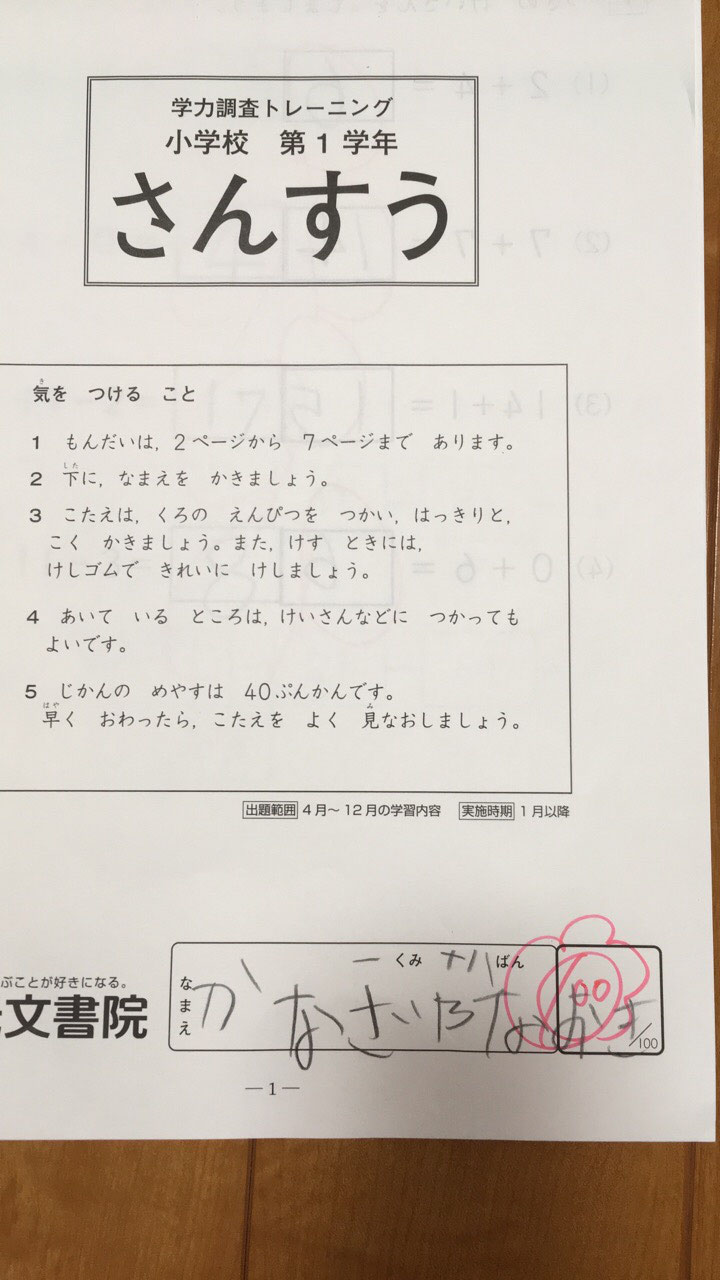 学力調査トレーニング
小学校 第1学年
さんすう
気を つける こと
1 もんだいは, 2ページから 7ページまで あります。
2 下に, なまえを かきましょう。
3 こたえは, くろの えんぴつを つかい, はっきりと,
こく かきましょう。また, けす ときには,
けしゴムで きれいに けしましょう。
4 あいて いる ところは, けいさんなどに つかっても
よいです。
5 じかんの めやすは 40ぷんかんです。
早く おわったら, こたえを よく 見なおしましょう。
出題範囲 4月~12月の学習内容 実施時期 1月以降
ぶことが好きになる。
文書院
一くみ 十八ばん
なまえ
100
/100
—1—